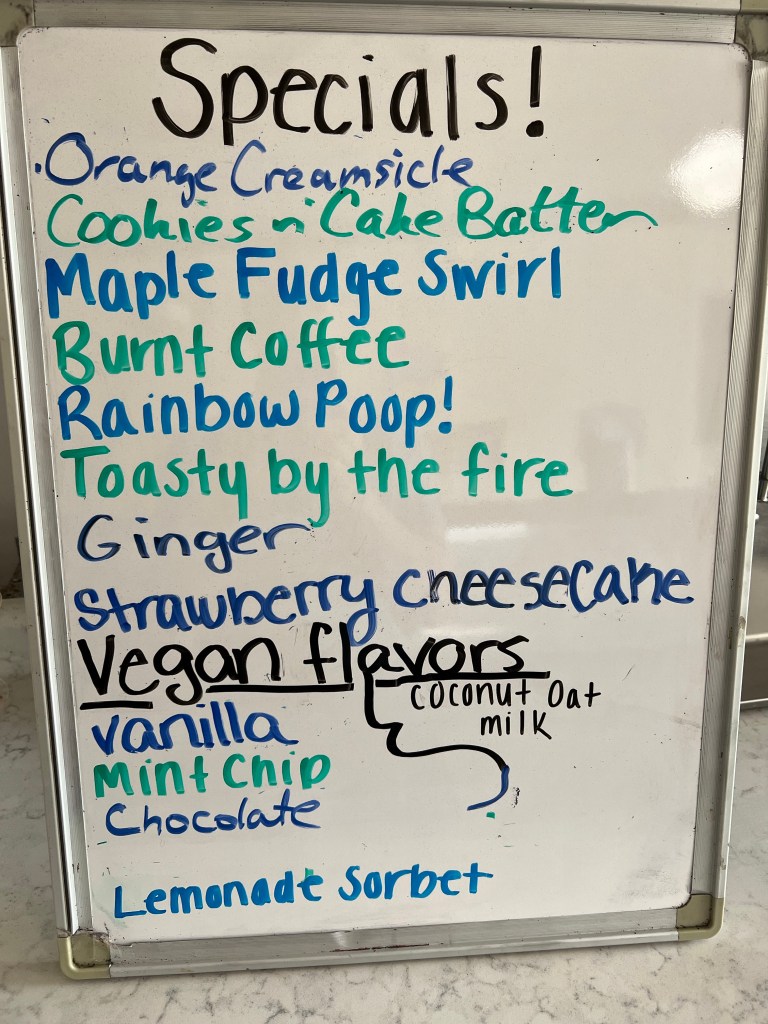 Specials!
Orange Creamsicle
Cookies n' Cake Batter
Maple Fudge Swirl
Burnt Coffee
Rainbow Poop!
Toasty by the fire
Ginger
Strawberry Cheesecake
Vegan flavors
coconut oat
milk
vanilla
Mint Chip
Chocolate
Lemonade Sorbet